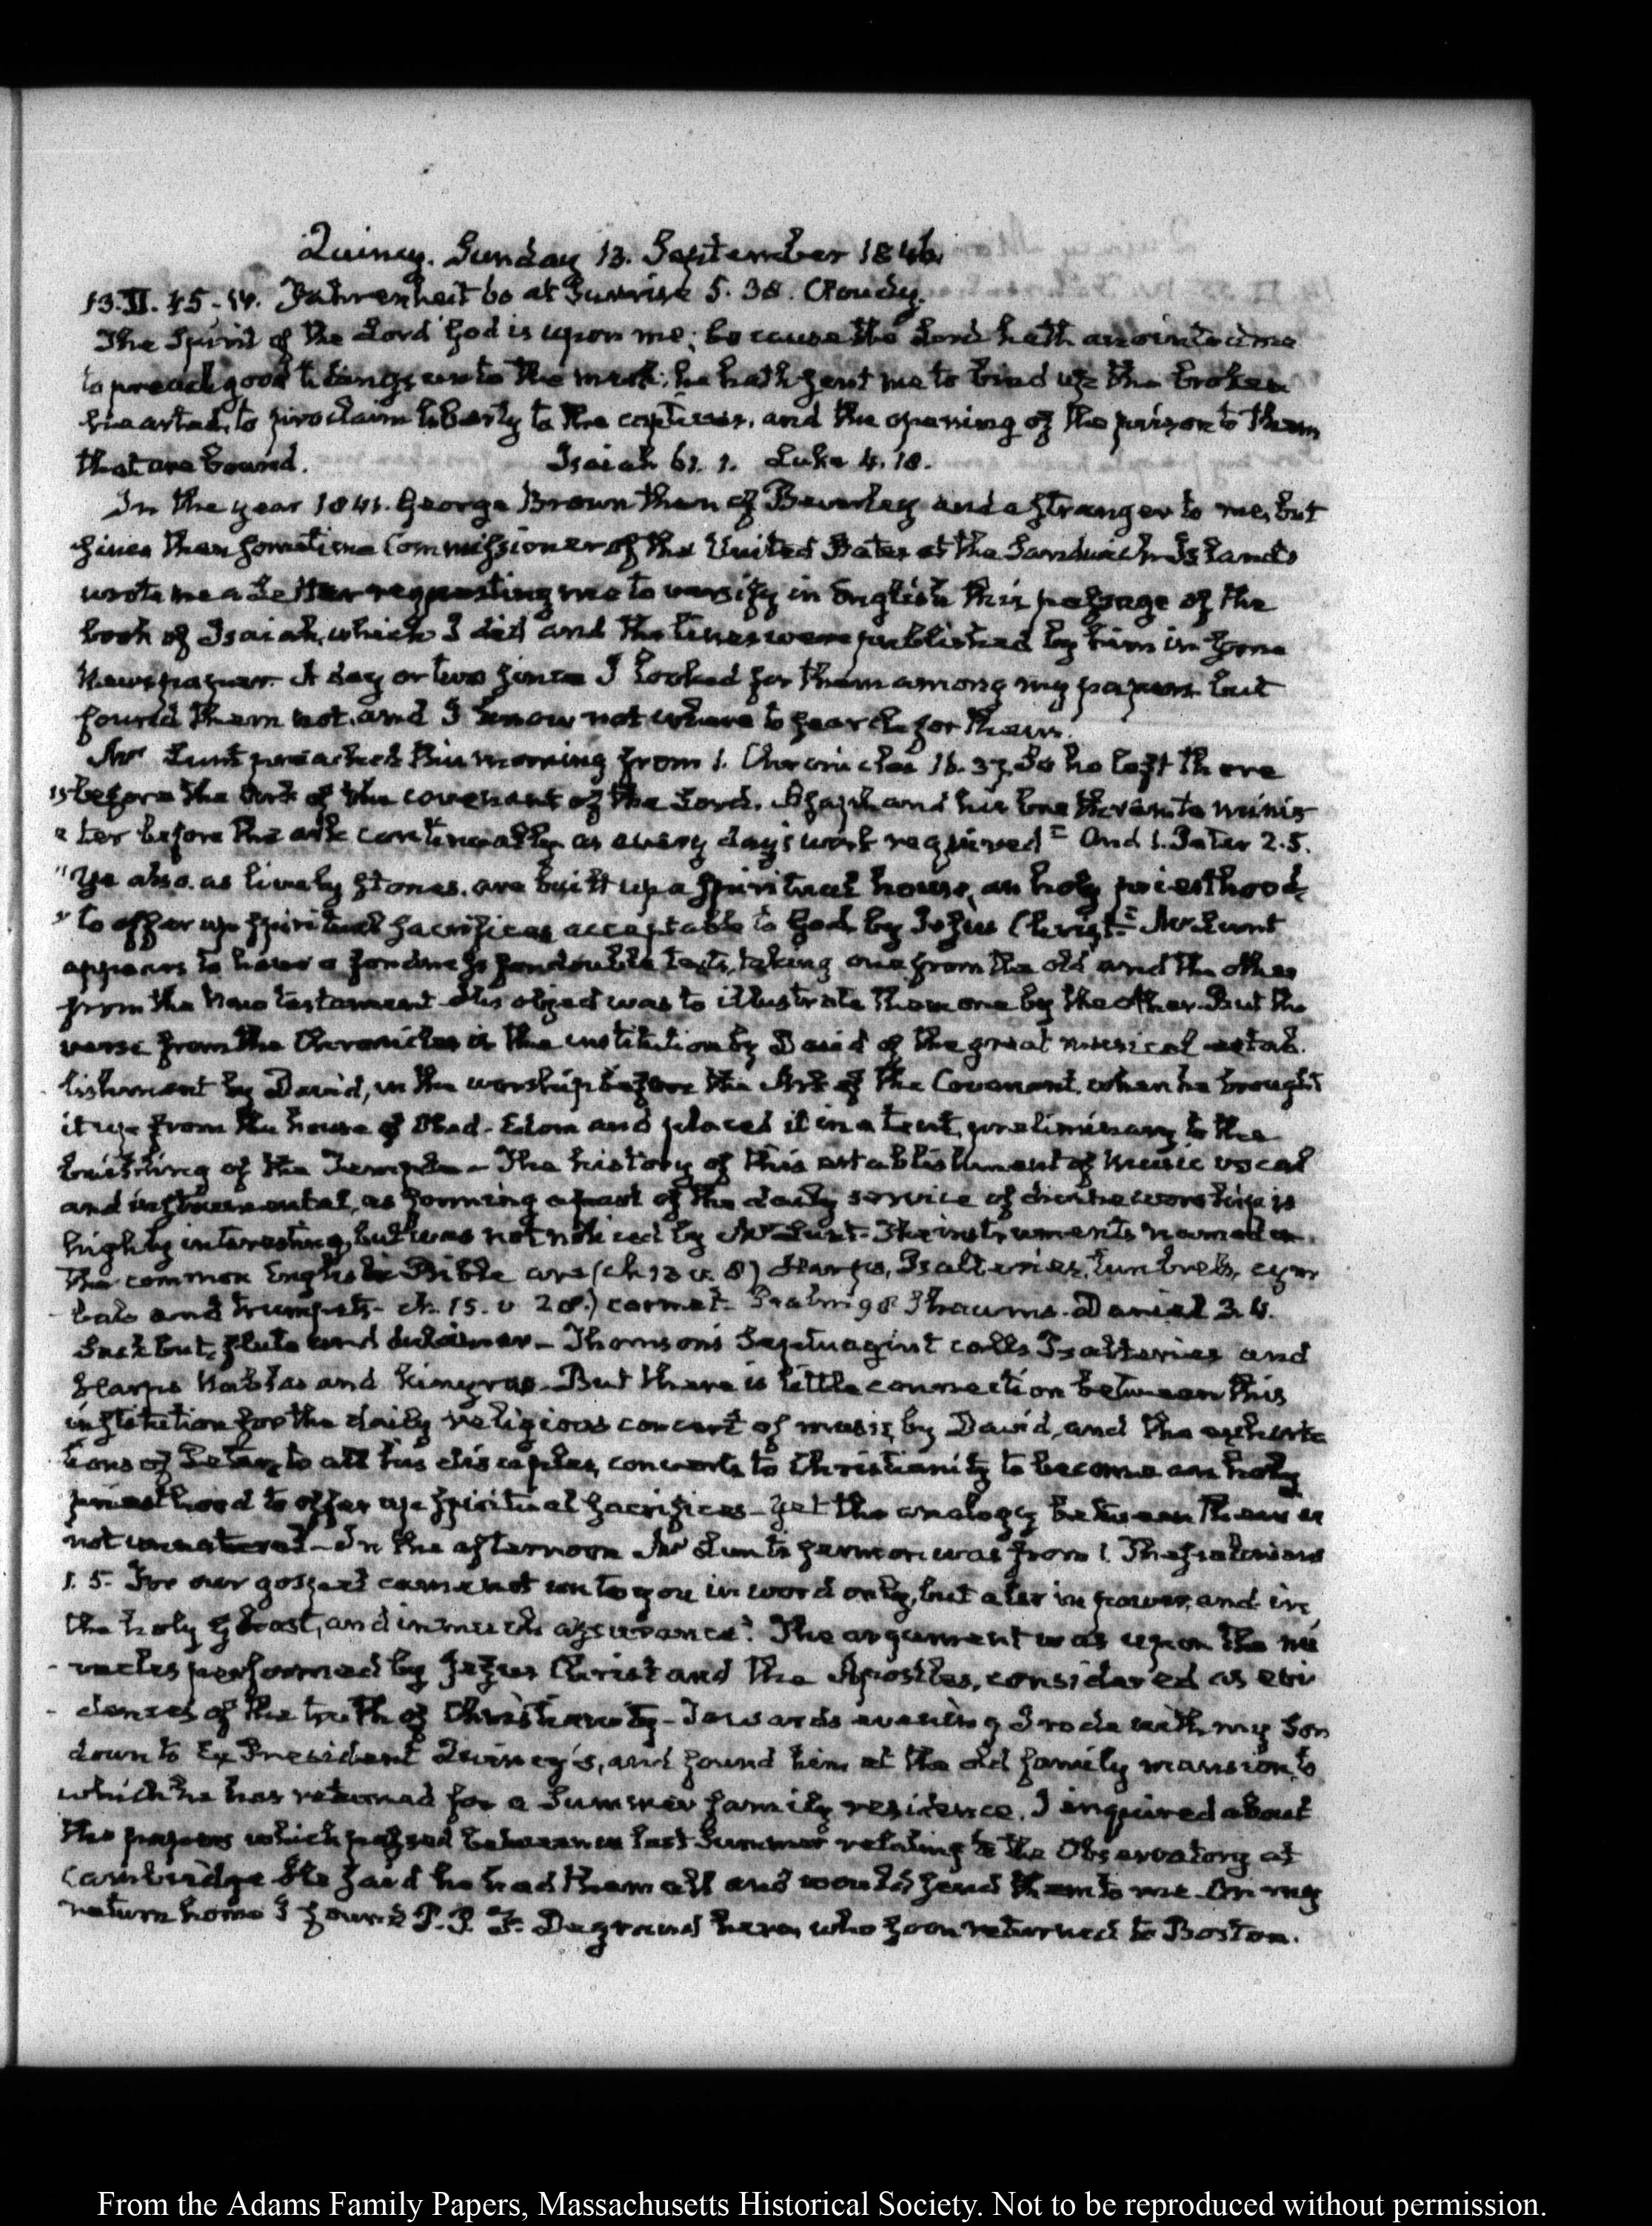 Quincy. Sunday 13. September 1846.
13. II. 45-IV. Fahrenheit 60 at Sunrise 5. 38. Cloudy.
The Spirit of the Lord God is upon me; because the Lord hath anointed me
to preach good tidings unto the meek; he hath sent me to bind up the broken
hearted, to proclaim liberty to the captives, and the opening of the prison to them
that are bound. Isaiah 61. 1. Luke 4. 18.
In the year 1841. George Brown then of Beverley and a stranger to me, but
since then sometime Commissioner of the United States at the Sandwich Islands
wrote me a Letter requesting me to versify in English this passage of the
book of Isaiah, which I did, and the lines were published by him in some
Newspaper. A day or two since I looked for them among my papers but
found them not, and I know not where to search for them.
Mr Lunt preached this morning from 1. Chronicles 16. 37. So he left there
before the Ark of the covenant of the Lord, Asaph and his brethren to minis
ter before the ark continually, as every day's work required" And 1. Peter 2. 5.
"Ye also, as lively stones, are built up a spiritual house, an holy priesthood,
to offer up spiritual sacrifices acceptable to God, by Jesus Christ" Mr Lunt
appears to have a fondness for double texts, taking one from the old, and the other
from the New testament. His object was to illustrate them one by the other. But the
verse from the Chronicles is the institution by David of the great musical estab.
lishment by David, in the worship before the Ark of the Covenant, when he brought
it up from the house of Obed-Edom and placed it in a tent, preliminary to the
building of the Temple - The history of this establishment of music vocal
and instrumental, as forming a part of the daily service of divine worship is
highly interesting, but was not noticed by Mr Lunt - The instruments named in
the common English Bible are (ch 13 v. 8) Harps, Psalteries, timbrels, cym
bals and trumpets - ch. 15. v 28.) cornet - Psalm 98 Shawms. Daniel 3. 4.
Sackbut, flute and dulcimer - Thomson's Septuagint calls Psalteries and
Harps Nablas and Kinyras - But there is little connection between this
institution for the daily religious concert of music, by David, and the exhorta
tions of Peter, to all his disciples, converts to Christianity to become an holy
priesthood to offer up spiritual sacrifices - yet the analogy between them is
not unnatural - In the afternoon Mr Lunt's sermon was from 1. Thessalonians
1. 5. For our gospel came not unto you in word only, but also in power, and in
the holy ghost, and in much assurance". The argument was upon the mi
racles performed by Jesus Christ and the Apostles, considered as evi
dences of the truth of Christianity - Towards evening I rode with my Son
down to Ex President Quincy's, and found him at the old family mansion, to
which he has returned for a Summer family residence. I enquired about
the papers which passed between us last Summer relating to the Observatory at
Cambridge He said he had them all and would send them to me. On my
return home I found P. P. F. Degrand here, who soon returned to Boston.
From the Adams Family Papers, Massachusetts Historical Society. Not to be reproduced without permission.